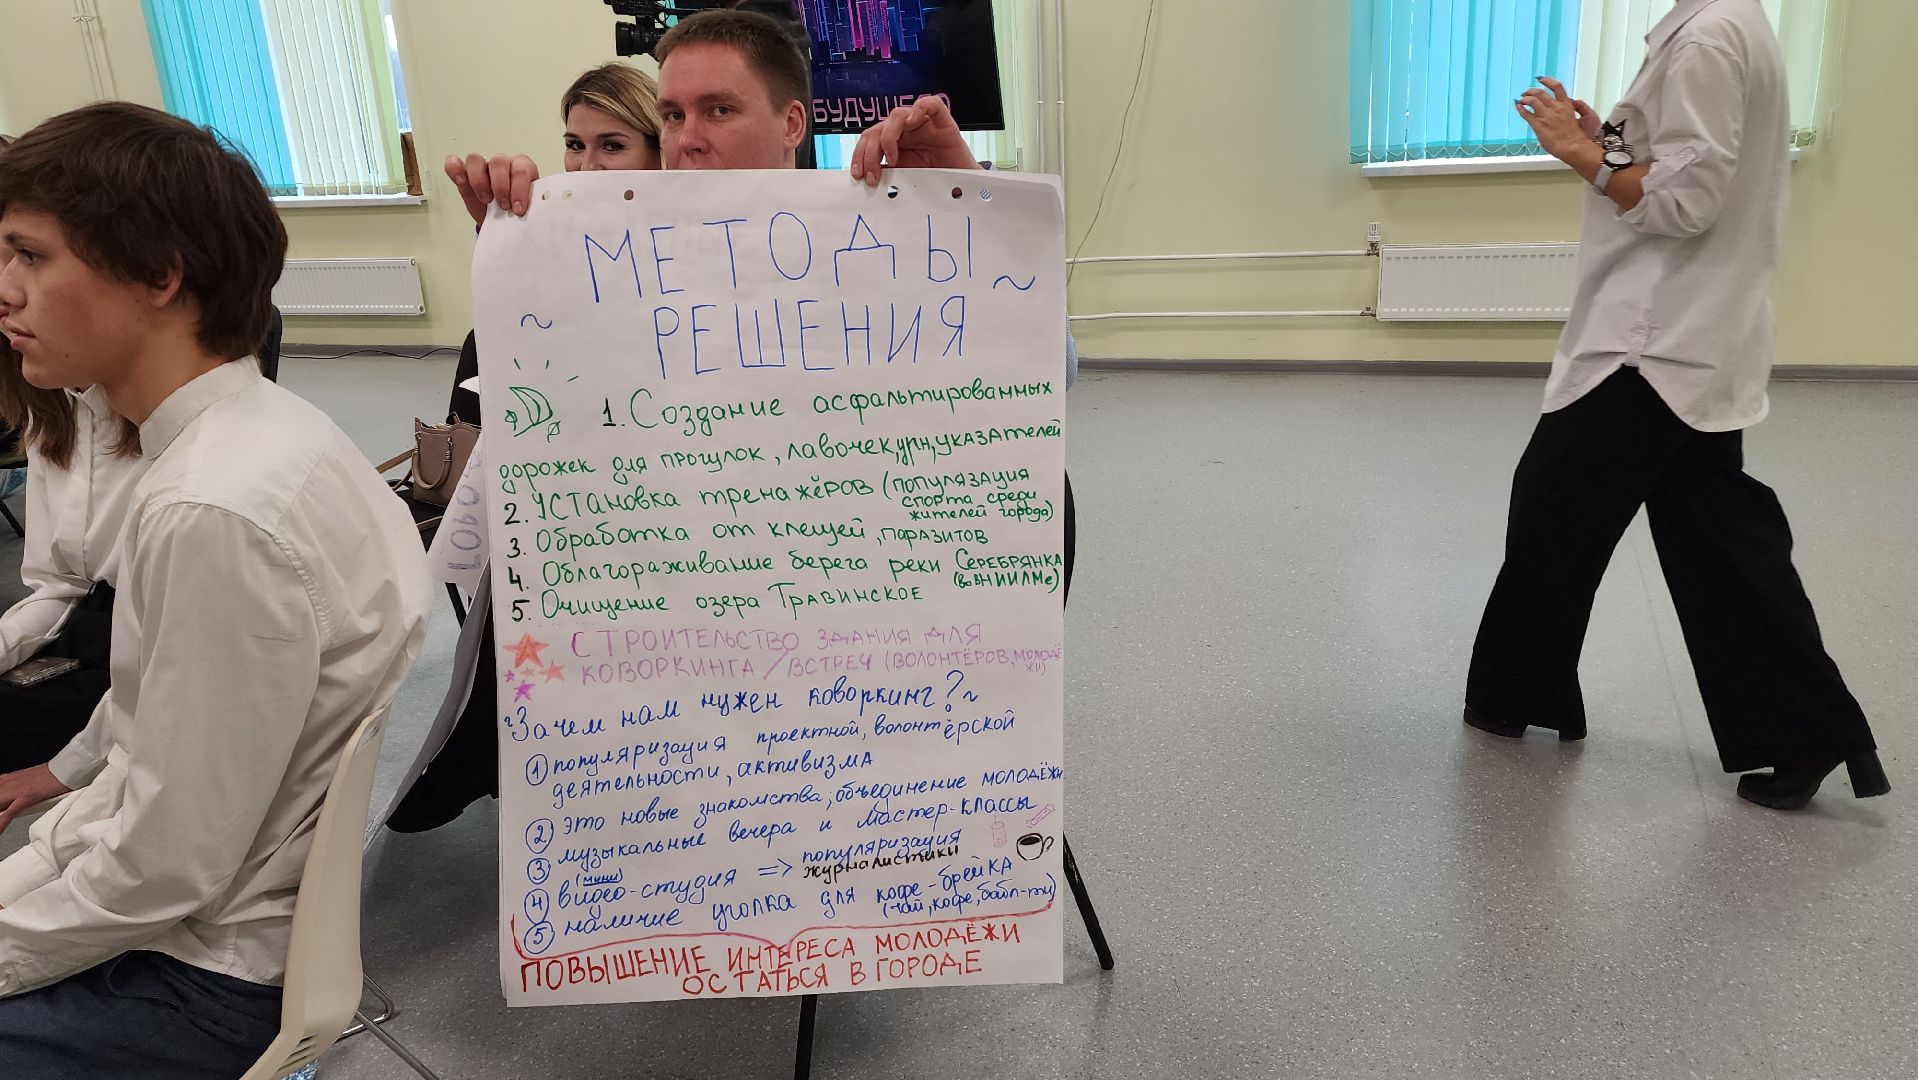 БУДУЩЕГО
МЕТОДЫ
РЕШЕНИЯ
1. Создание асфальтированных
дорожек для прогулок, лавочек, урн, указателей
2. Установка тренажёров (популязация
спорта среди
жителей города)
3. Обработка от клещей, паразитов
4. Облагораживание берега реки Серебрянка
(во ВНИИЛМе)
5. Очищение озера Травинское
СТРОИТЕЛЬСТВО ЗДАНИЯ ДЛЯ
КОВОРКИНГА/ВСТРЕЧ (ВОЛОНТЁРОВ, МОЛОДЁ
ЖИ)
~Зачем нам нужен коворкинг?~
1 популяризация проектной, волонтёрской
деятельности, активизма
2 это новые знакомства; объединение молодёжи
3 музыкальные вечера и мастер-классы
(мини)
4 видео-студия => популяризация
журналистики
5 наличие уголка для кофе-брейка
(чай, кофе, бабл-ти)
ПОВЫШЕНИЕ ИНТЕРЕСА МОЛОДЁЖИ
ОСТАТЬСЯ В ГОРОДЕ